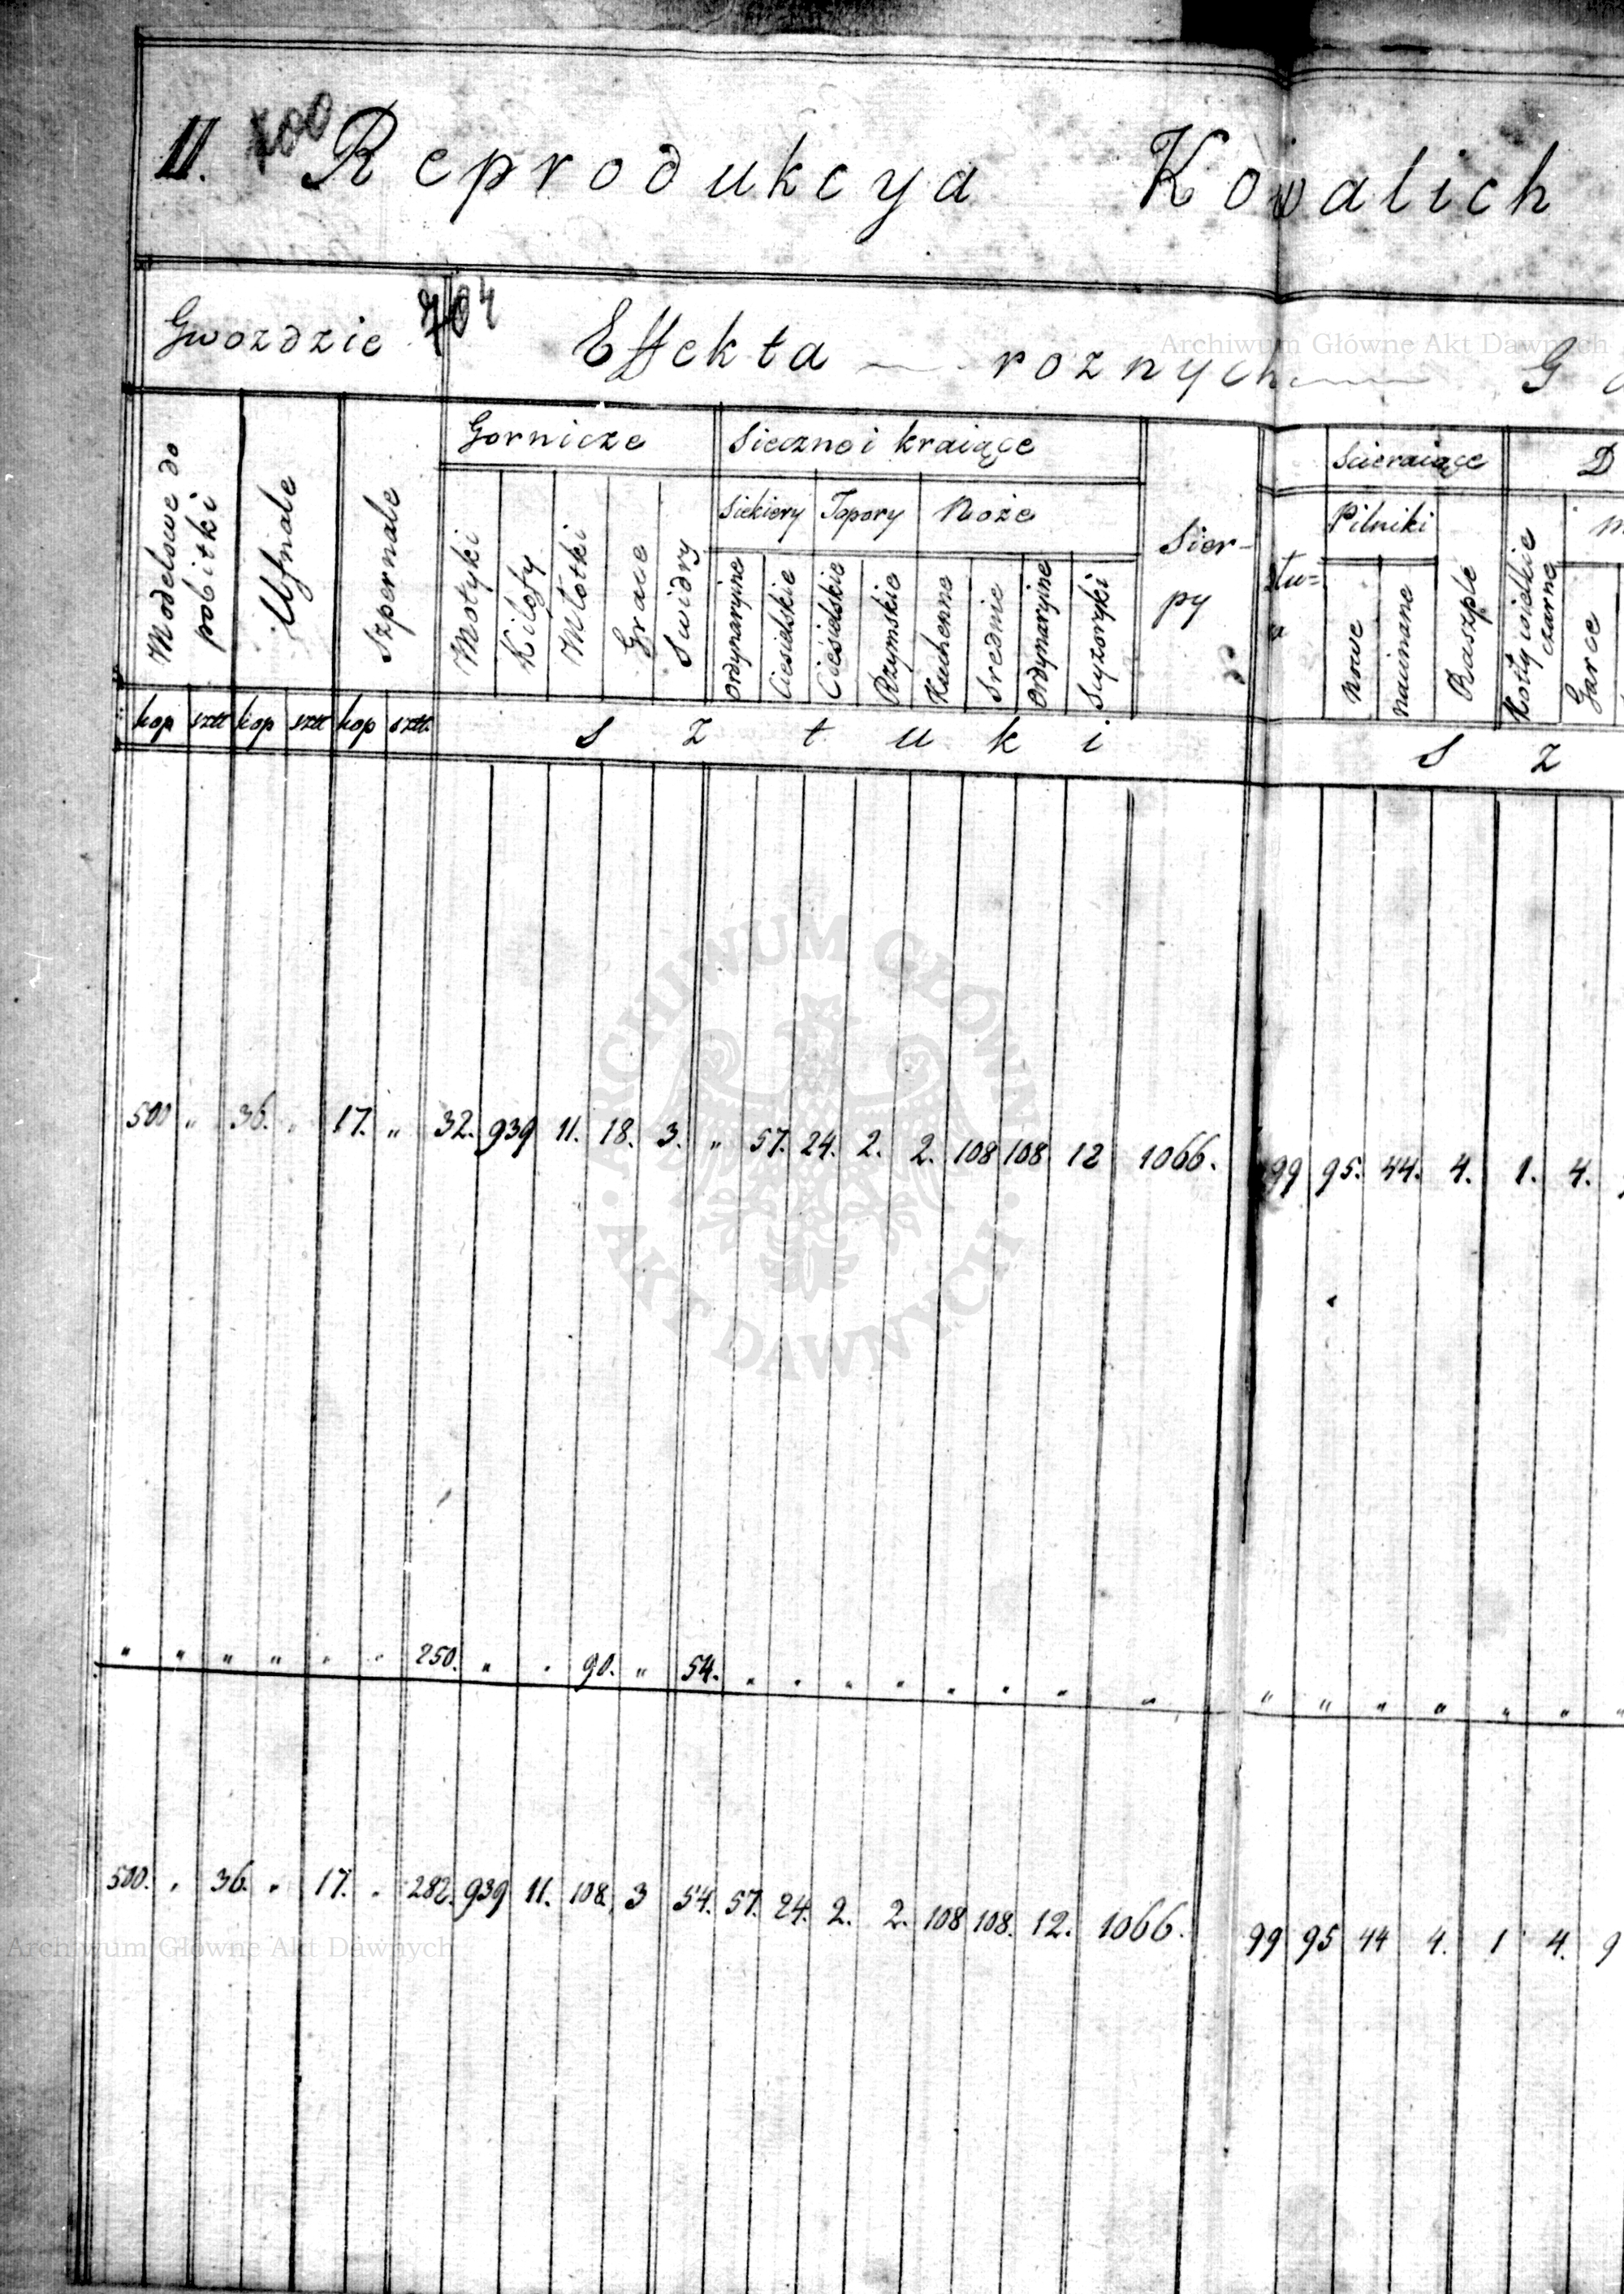 II. Reprodukcya Kowalich
700
Gwozdzie 704 Effekta roznych G
Gornicze Sieczne i kraiące Scieraiące D
Siekiery Topory Noże Pilniki
Modelowe do pobitki
Ufnale
Szpernale
Motyki
Kilofy
Młotki
Grace
Swidry
Ordynaryine
Ciesielskie
Ciesielskie
Rzymskie
Kuchenne
Srednie
Ordynaryine
Scyzoryki
Sier-
py
Nowe
Raszple
Kotły wielkie czarne
Garce
kop sztt kop sztt kop sztt. Sztuki S z
500 " 36. " 17. " 32. 939 11. 18. 3. " 57. 24. 2. 2. 108 108 12 1066. 99 95. 44. 4. 1. 4.
" " " " " " 250. " " 90. " 54. " " " " " " " " " " " " " " "
500. " 36. " 17. " 282. 939 11. 108. 3 54. 57. 24. 2. 2. 108 108. 12. 1066. 99 95 44 4. 1 4. 9
Archiwum Główne Akt Dawnych
ARCHIWUM GŁÓWNE AKT DAWNYCH
Archiwum Główne Akt Dawnych